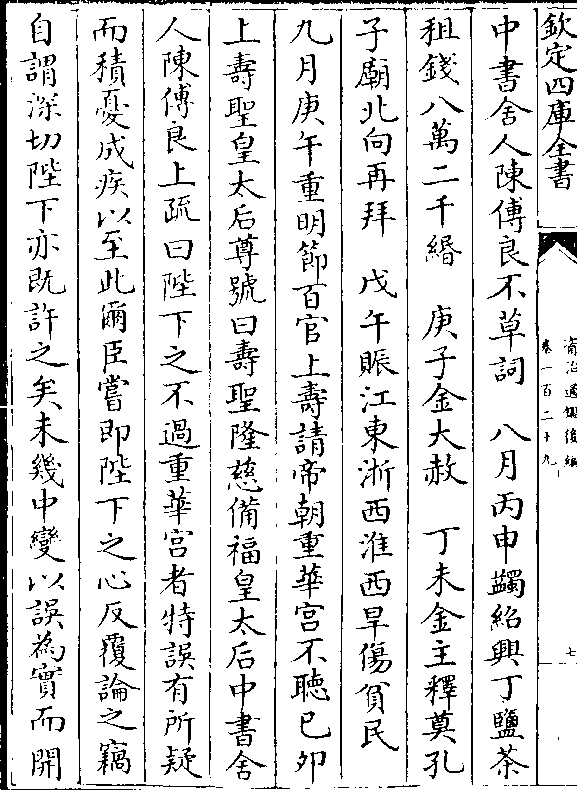 欽定四庫全書
資治通鑑後編
卷一百二十九
七
中書舍人陳傅良不草詞　八月丙申蠲紹興丁鹽茶
租錢八萬二千緡　庚子金大赦　丁未金主釋奠孔
子廟北向再拜　戊午賑江東浙西淮西旱傷貧民
九月庚午重明節百官上壽請帝朝重華宮不聽己卯
上壽聖皇太后尊號曰壽聖隆慈備福皇太后中書舍
人陳傅良上疏曰陛下之不過重華宮者特誤有所疑
而積憂成疾以至此爾臣嘗即陛下之心反覆論之竊
自謂深切陛下亦既許之矣未幾中變以誤為實而開